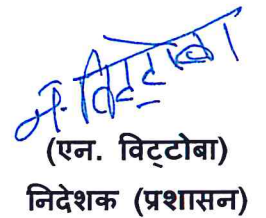 एन. विट्टोबा
(एन. विट्टोबा)
निदेशक (प्रशासन)